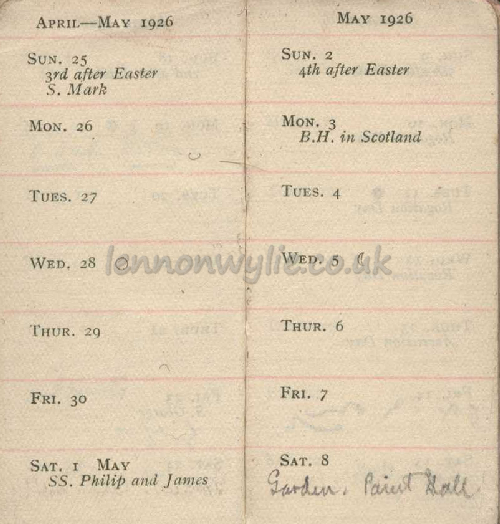 APRIL—MAY 1926
SUN. 25
3rd after Easter
S. Mark
MON. 26
TUES. 27
WED. 28
THUR. 29
FRI. 30
SAT. 1 MAY
SS. Philip and James
MAY 1926
SUN. 2
4th after Easter
MON. 3
B.H. in Scotland
TUES. 4
WED. 5
THUR. 6
FRI. 7
SAT. 8
Garden. Paint Hall
lennonwylie.co.uk